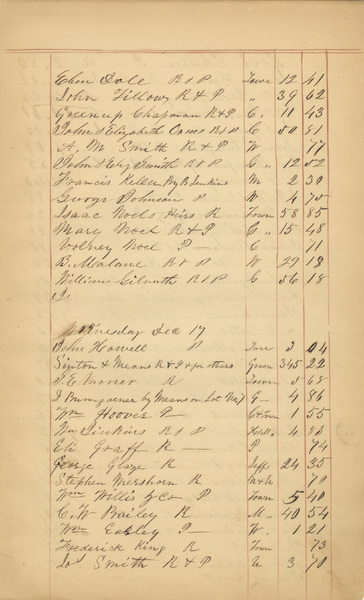 Eben Dole R & P Town 12 41
John Fillow R & P " 39 62
Greenup Chapman R & P C. 11 43
John & Elizabeth R & P C 50 81
A. M Smith R & P W 77
John & Eliz Smith R & P C " 12 52
Francis Keller By B Jenkins M 2 30
George Johnson P W 4 75
Isaac Noels Heirs R Town 58 85
Mary Noel R & P C " 15 48
Volney Noel P — C 71
B. Malane R & P W 29 18
William Gilruth R & P G 56 18
Wednesday Dec 17
John Howell P 3 04
Sinton & Means R & P & for others Green 345 22
T. C Varner R Town 5 68
J Bumgarner by Means on Lot No 7 G — 4 86
Wm Hoover P — 1 55
Wm Jenkins R & P 4 83
Eli Graff R — P 74
George Glaze R Jeffs 24 35
Stephen Mershorn R 70
Wm Willis & Co P Town 5 40
C. W Bailey R M. 40 54
Wm Easley P — W. 1 21
Frederick King R Town 73
Jos Smith R & P U 3 70